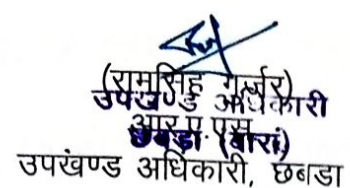 (रामसिंह गुर्जर)
उपखण्ड अधिकारी
आर.ए.एस.
छबड़ा (बारां)
उपखंण्ड अधिकारी, छबडा